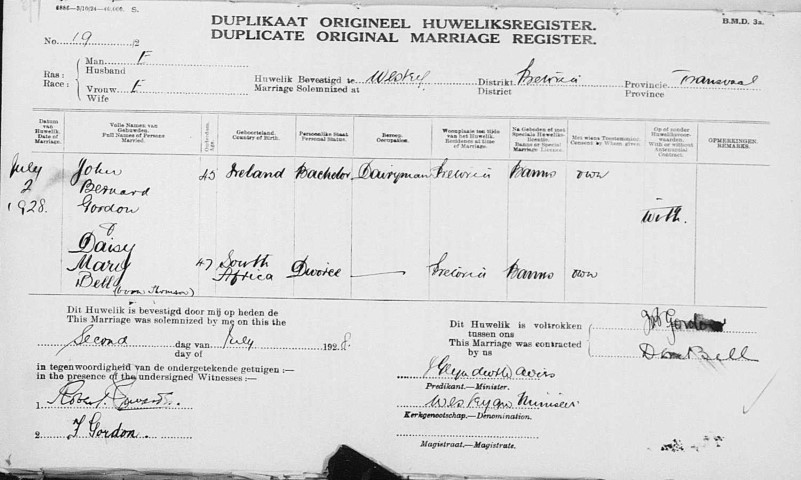 6885—5/10/24—40,000. S.
B.M.D. 3a.
DUPLIKAAT ORIGINEEL HUWELIKSREGISTER.
DUPLICATE ORIGINAL MARRIAGE REGISTER.
No. 19 /2
Ras :
Race :
Man E
Husband
Vrouw E
Wife
Huwelik Bevestigd te Wesley Distrikt Pretoria Provincie Transvaal
Marriage Solemnized at District Province
Datum van Huwelik. Date of Marriage.
Volle Namen van Gehuwden. Full Names of Persons Married.
Ouderdom. Age.
Geboorteland. Country of Birth.
Personelike Staat Personal Status.
Beroep. Occupation.
Woonplaats ten tijde van het Huwelik. Residence at time of Marriage.
Na Geboden of met Speciale Huweliks-licentie. Banns or Special Marriage Licence.
Met wiens Toestemming. Consent by Whom given.
Op of zonder Huweliksvoorwaarden. With or without Antenuptial Contract.
OPMERKINGEN. REMARKS.
July John 45 Ireland Bachelor Dairyman Pretoria Banns own
2 Bernard
1928. Gordon with.
&
Daisy
Mary 47 South Africa Divorcee — Pretoria Banns own
Bell
(born Thomson)
Dit Huwelik is bevestigd door mij op heden de
This Marriage was solemnized by me on this the
Second dag van July 1928.
day of
in tegenwoordigheid van de ondergetekende getuigen :—
in the presence of the undersigned Witnesses :—
1. Robert
2. F Gordon.
Dit Huwelik is voltrokken
tussen ons
This Marriage was contracted
by us
Gordon
Bell
Predikant.—Minister.
Wesleyan Minister
Kerkgenootschap.—Denomination.
Magistraat.—Magistrate.